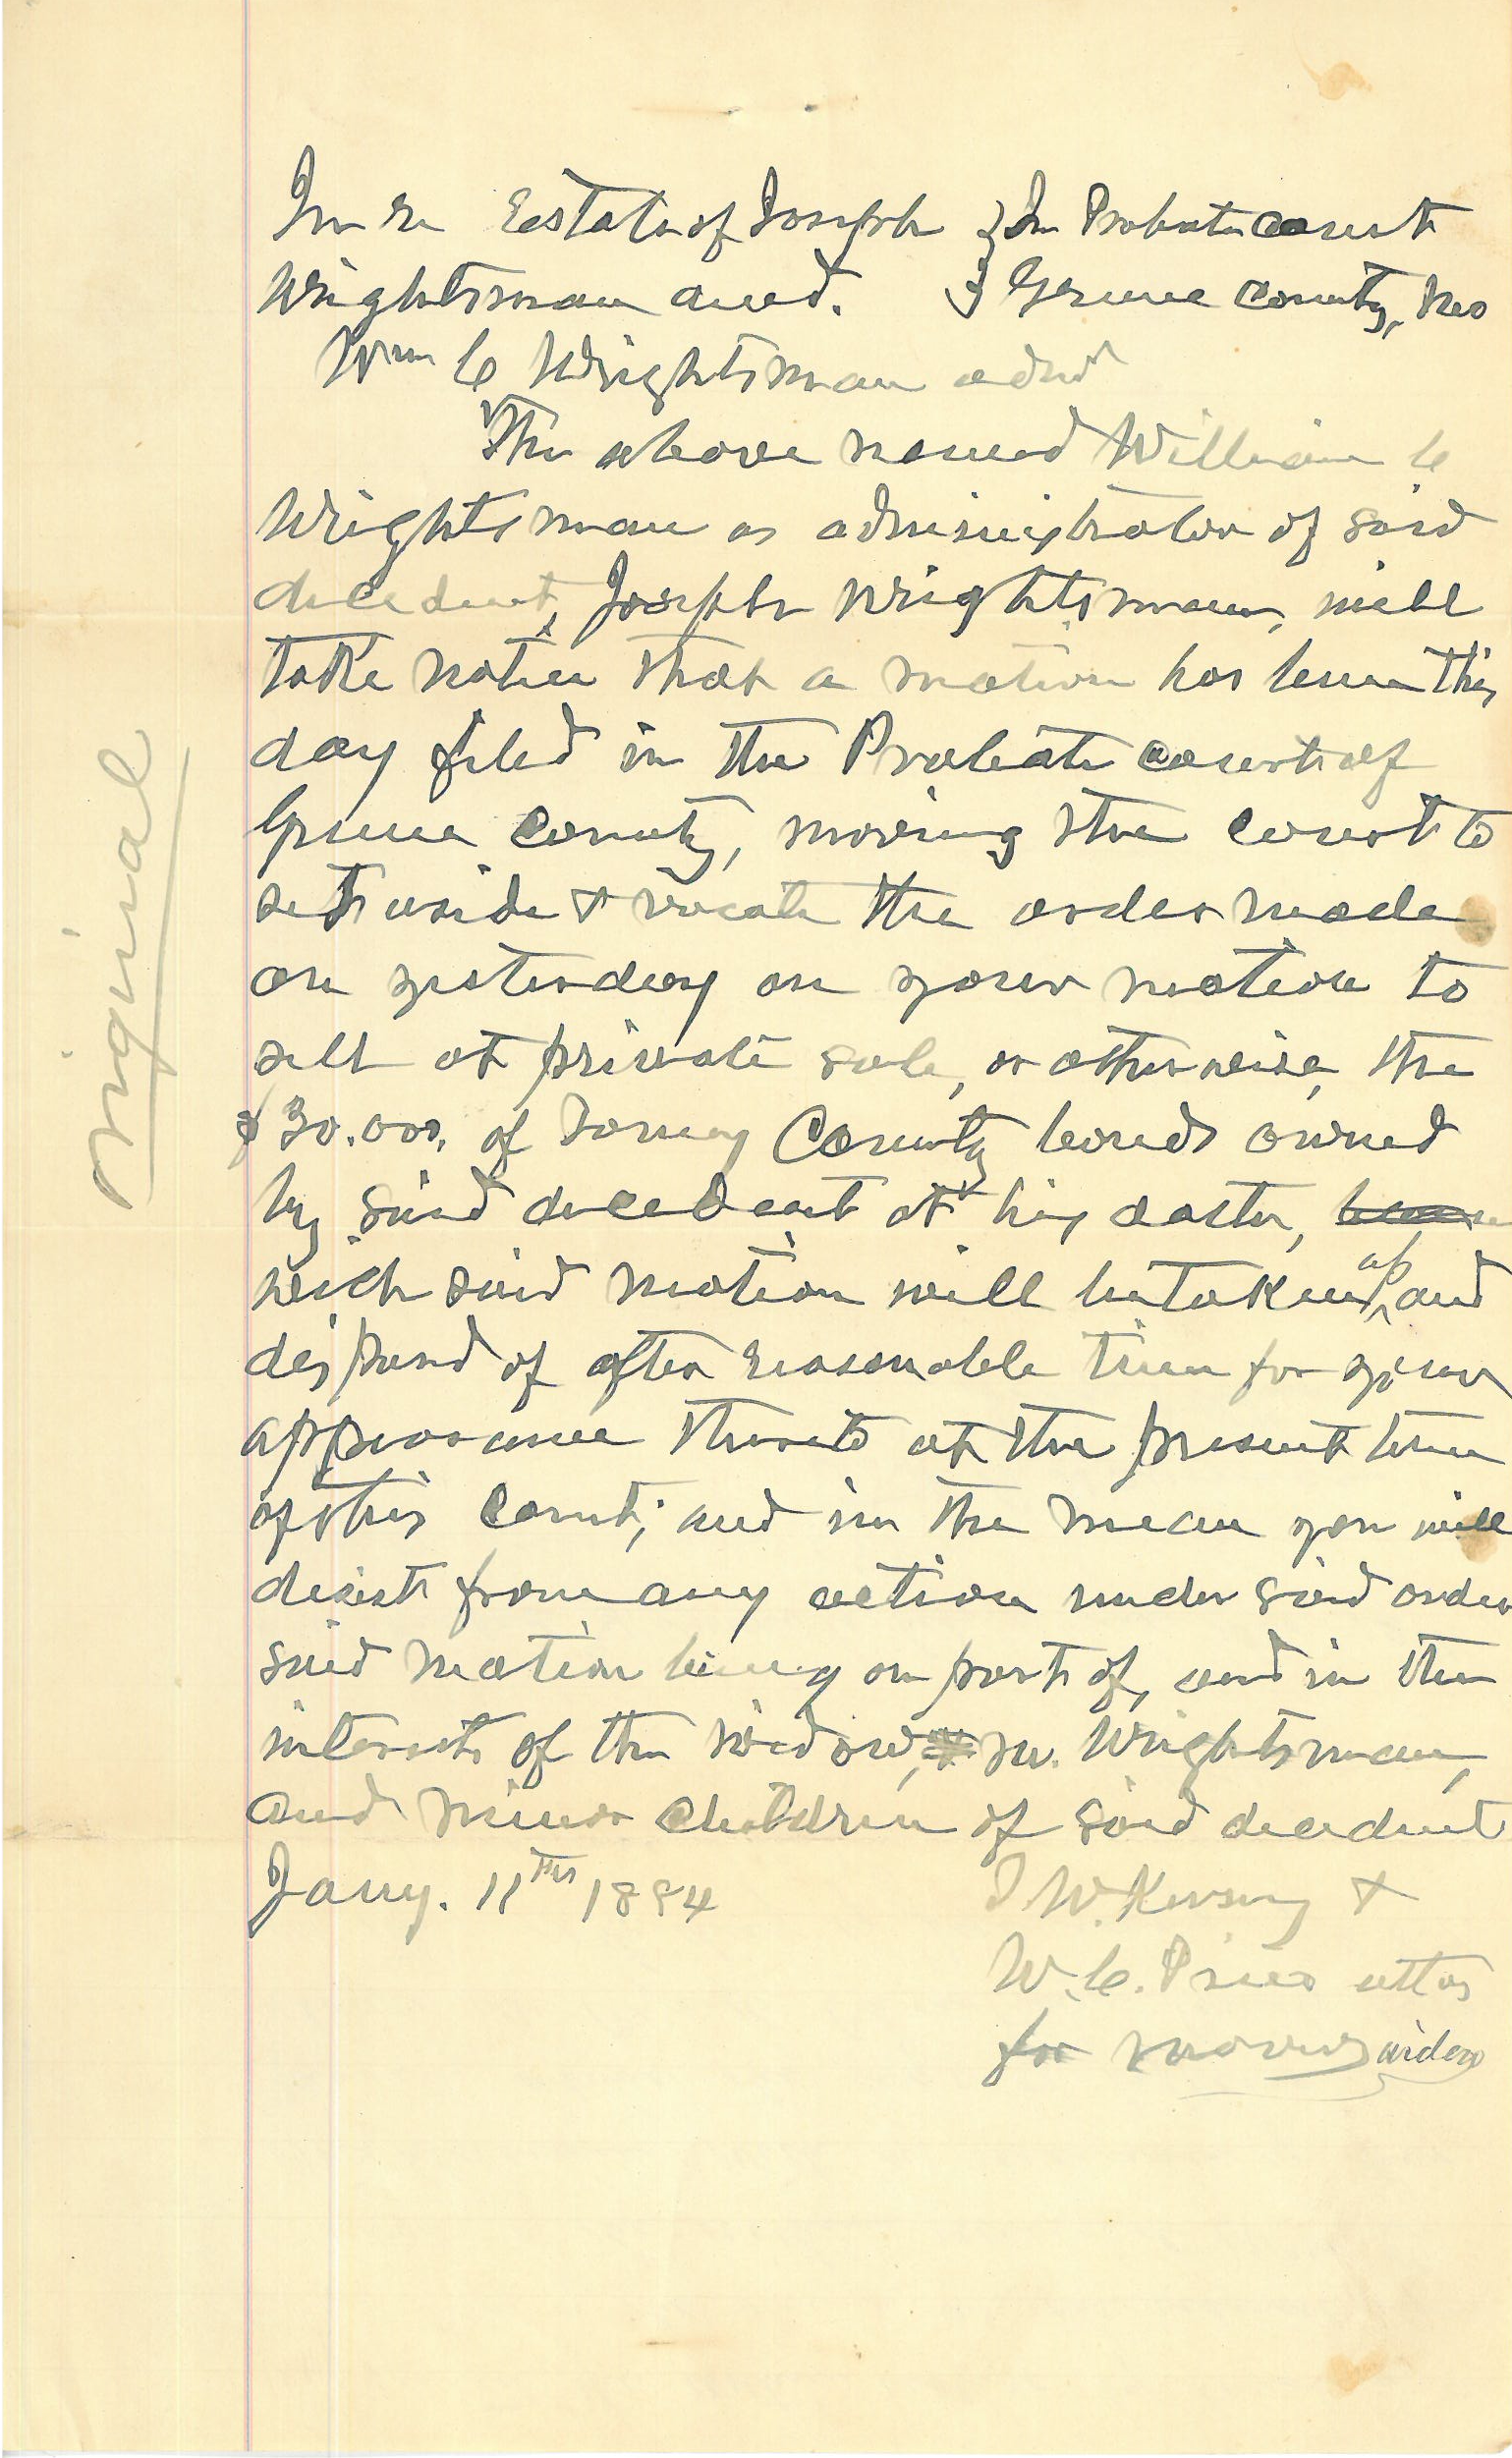 In re Estate of Joseph } In Probate Court
Wrightsman decd. } Greene County, Mo
Wm C Wrightsman admr
The above named William C
Wrightsman as administrator of said
decedent, Joseph Wrightsman, will
take notice that a motion has been this
day filed in the Probate court of
Greene County, moving the Court to
set aside & vacate the order made
on yesterday on your motion to
sell at private sale, or otherwise, the
$30.000. of Taney County bonds owned
by said decedent at his death,
which said motion will be taken up and
disposed of after reasonable time for your
appearance thereto at the present term
of this Court; and in the mean you will
desist from any action under said order
said motion being on part of, and in the
interests of the widow, M. Wrightsman,
and minor children of said decedent
Jany. 11th 1894
T W. Kersey &
W. C. Price attos
for moving widow
Original